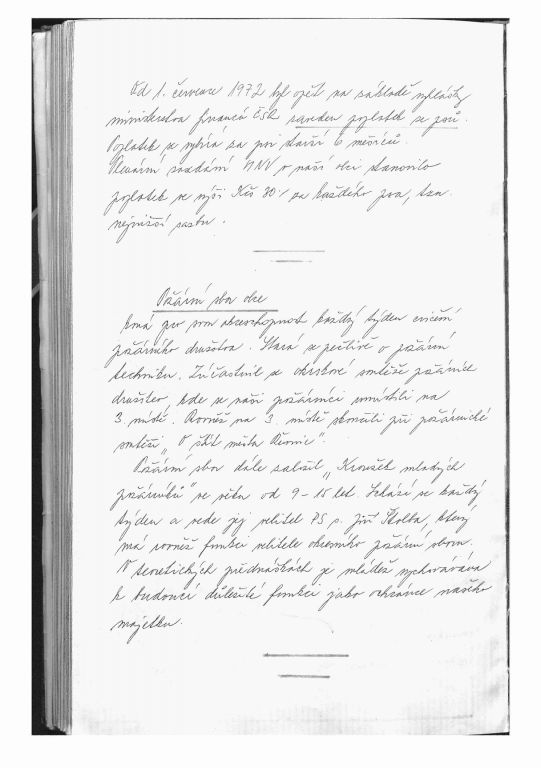 Od 1. července 1972 byl opět na základě vyhlášky
ministerstva financí ČSR zaveden poplatek ze psů.
Poplatek se vybírá za psi starší 6 měsíců.
Plenární zasedání MNV v naší obci stanovilo
poplatek ve výši Kčs 30,- za každého psa, tzn.
nejnižší sazbu.
Požární sbor obce
má pro svou akceschopnost každý týden cvičení
požárního družstva. Stará se pečlivě o požární
techniku. Zúčastnil se okrskové soutěže požárnic.
družstev, kde se naši požárníci umístili na
3. místě. Rovněž na 3. místě skončili při požárnické
soutěži „O štít města
Požární sbor dále založil „Kroužek mladých
požárníků" ve věku od 9 - 15 let. Schází se každý
týden a vede jej velitel PS s. Jiří Štolba, který
má rovněž funkci velitele okresního požární sboru.
V teoretických přednáškách je mládež vychovávána
k budoucí důležité funkci jako ochránce našeho
majetku.